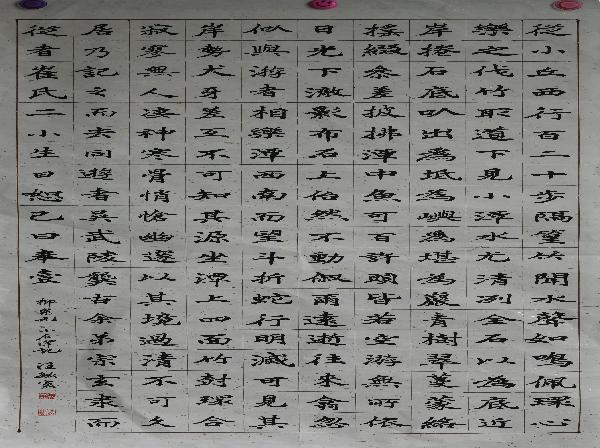 從小丘西行百二十步隔篁竹聞水聲如鳴佩環心
樂之伐竹取道下見小潭水尤清冽全石以為底近
岸捲石底以出為坻為嶼為堪為巖青樹翠蔓蒙絡
搖綴參差披拂潭中魚可百許頭皆若空游無所依
日光下澈影布石上佁然不動俶爾遠逝往來翕忽
似與游者相樂潭西南而望斗折蛇行明滅可見其
岸勢犬牙差互不可知其源坐潭上四面竹樹環合
寂寥無人淒神寒骨悄愴幽邃以其境過清不可久
居乃記之而去同遊者吳武陵龔古余弟宗玄隸而
從者崔氏二小生曰恕己曰奉壹
柳宗元小石潭記 汪